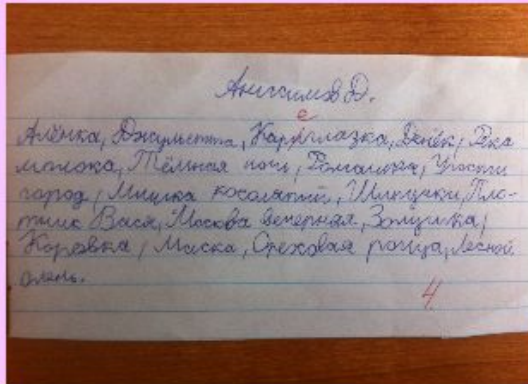 Анисимов Д.
е
Алёнка, Джульетта, Караглазка, Денёк, Река
молока, Тёмная ночь, Ромашка,
город, Мишка косолапый, Шипучки, Пло-
тник Вася, Москва вечерняя, Золушка,
Коровка, Маска, Ореховая роща, Лесной
олень.
4